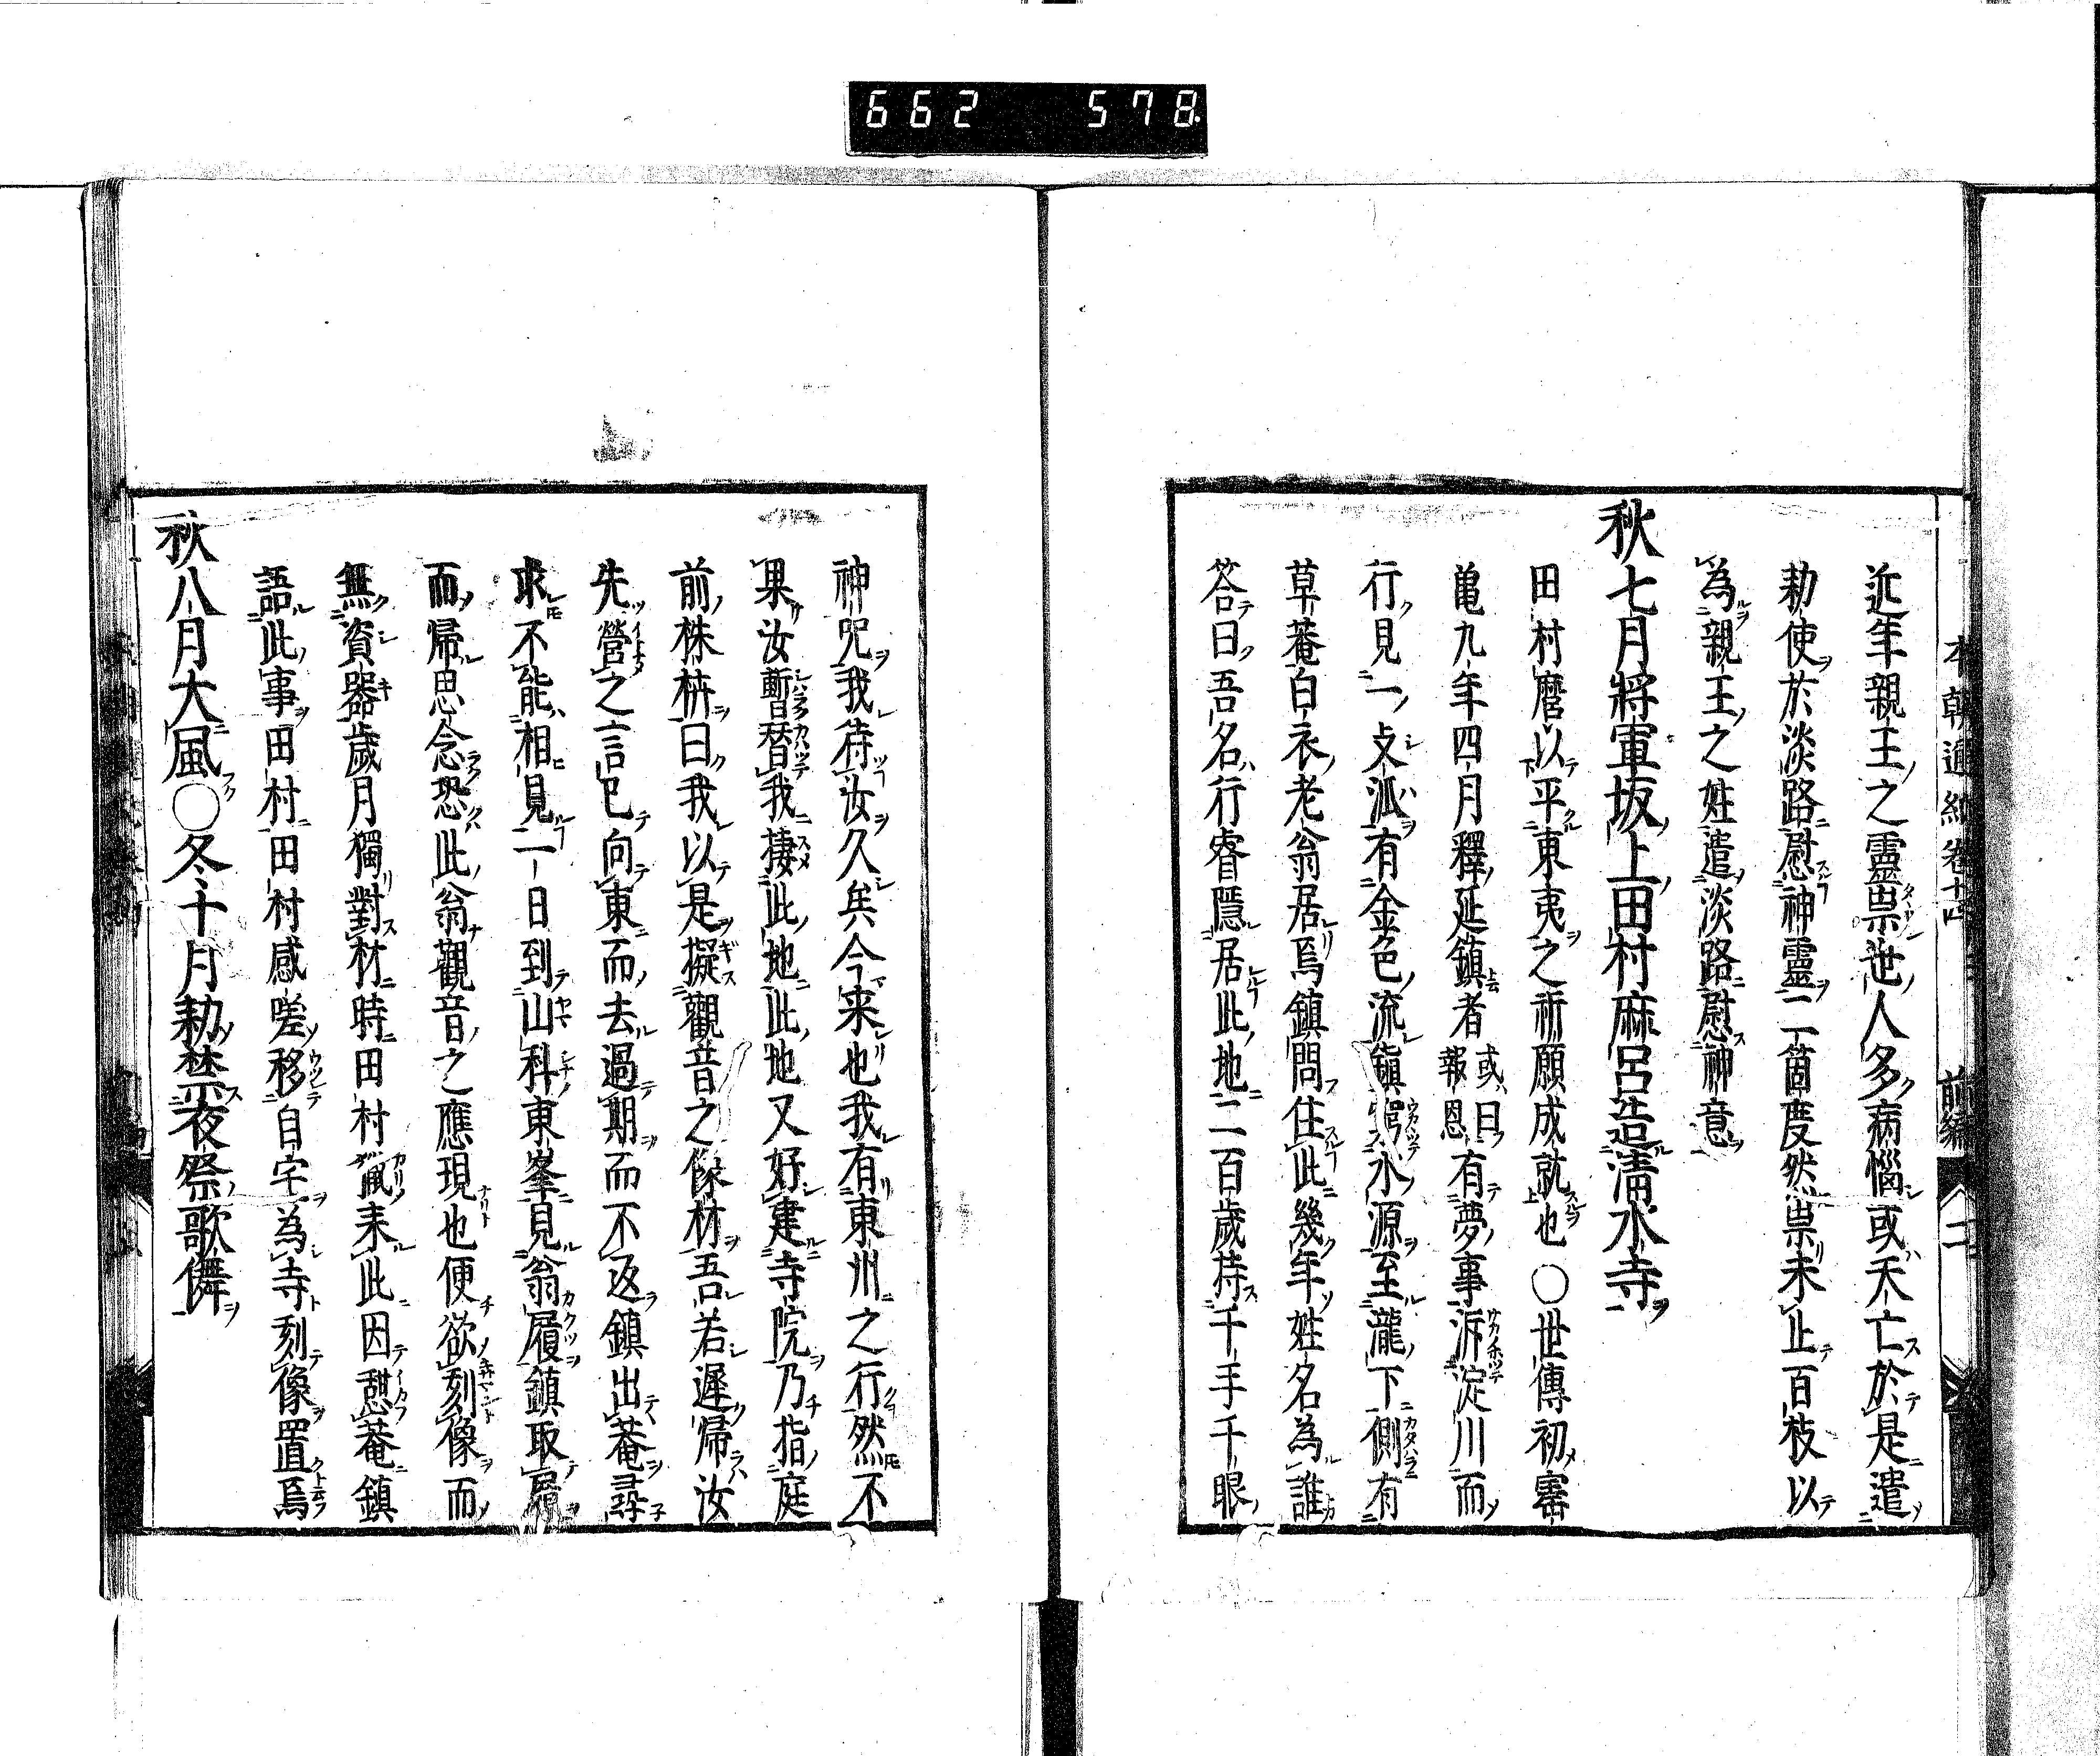 662 578
本朝通紀卷十四 前編 二
近年親王之靈祟世人多病惱或夭亡於是遣
勅使於淡路慰神靈一二箇度然祟未止百枝以
為親王之姓遣淡路慰神意
秋七月將軍坂上田村麻呂造淸水寺
田村麿以平東夷之祈願成就也○世傳初寳
亀九年四月釋延鎮者或曰報恩有夢事泝淀川而
行見一攴派有金色流鎮窮水源至瀧下側有
草菴白衣老翁居焉鎮問住此幾年姓名為誰
答曰吾名行睿隱居此地二百歲持千手千眼
神咒我待汝久矣今来也我有東州之行然不
果汝暫替我棲此地此地又好建寺院乃指庭
前株枿曰我以是擬觀音之像材吾若遲帰汝
先營之言已向東而去過期而不返鎮出菴尋
求不能相見一日到山科東峯見翁履鎮取履
而帰思念恐此翁觀音之應現也便欲刻像而
無資器歲月獨對材時田村獵来此因憇菴鎮
語此事田村田村感嗟移自宅為寺刻像置焉
秋八月大風○冬十月勅禁夜祭歌儛